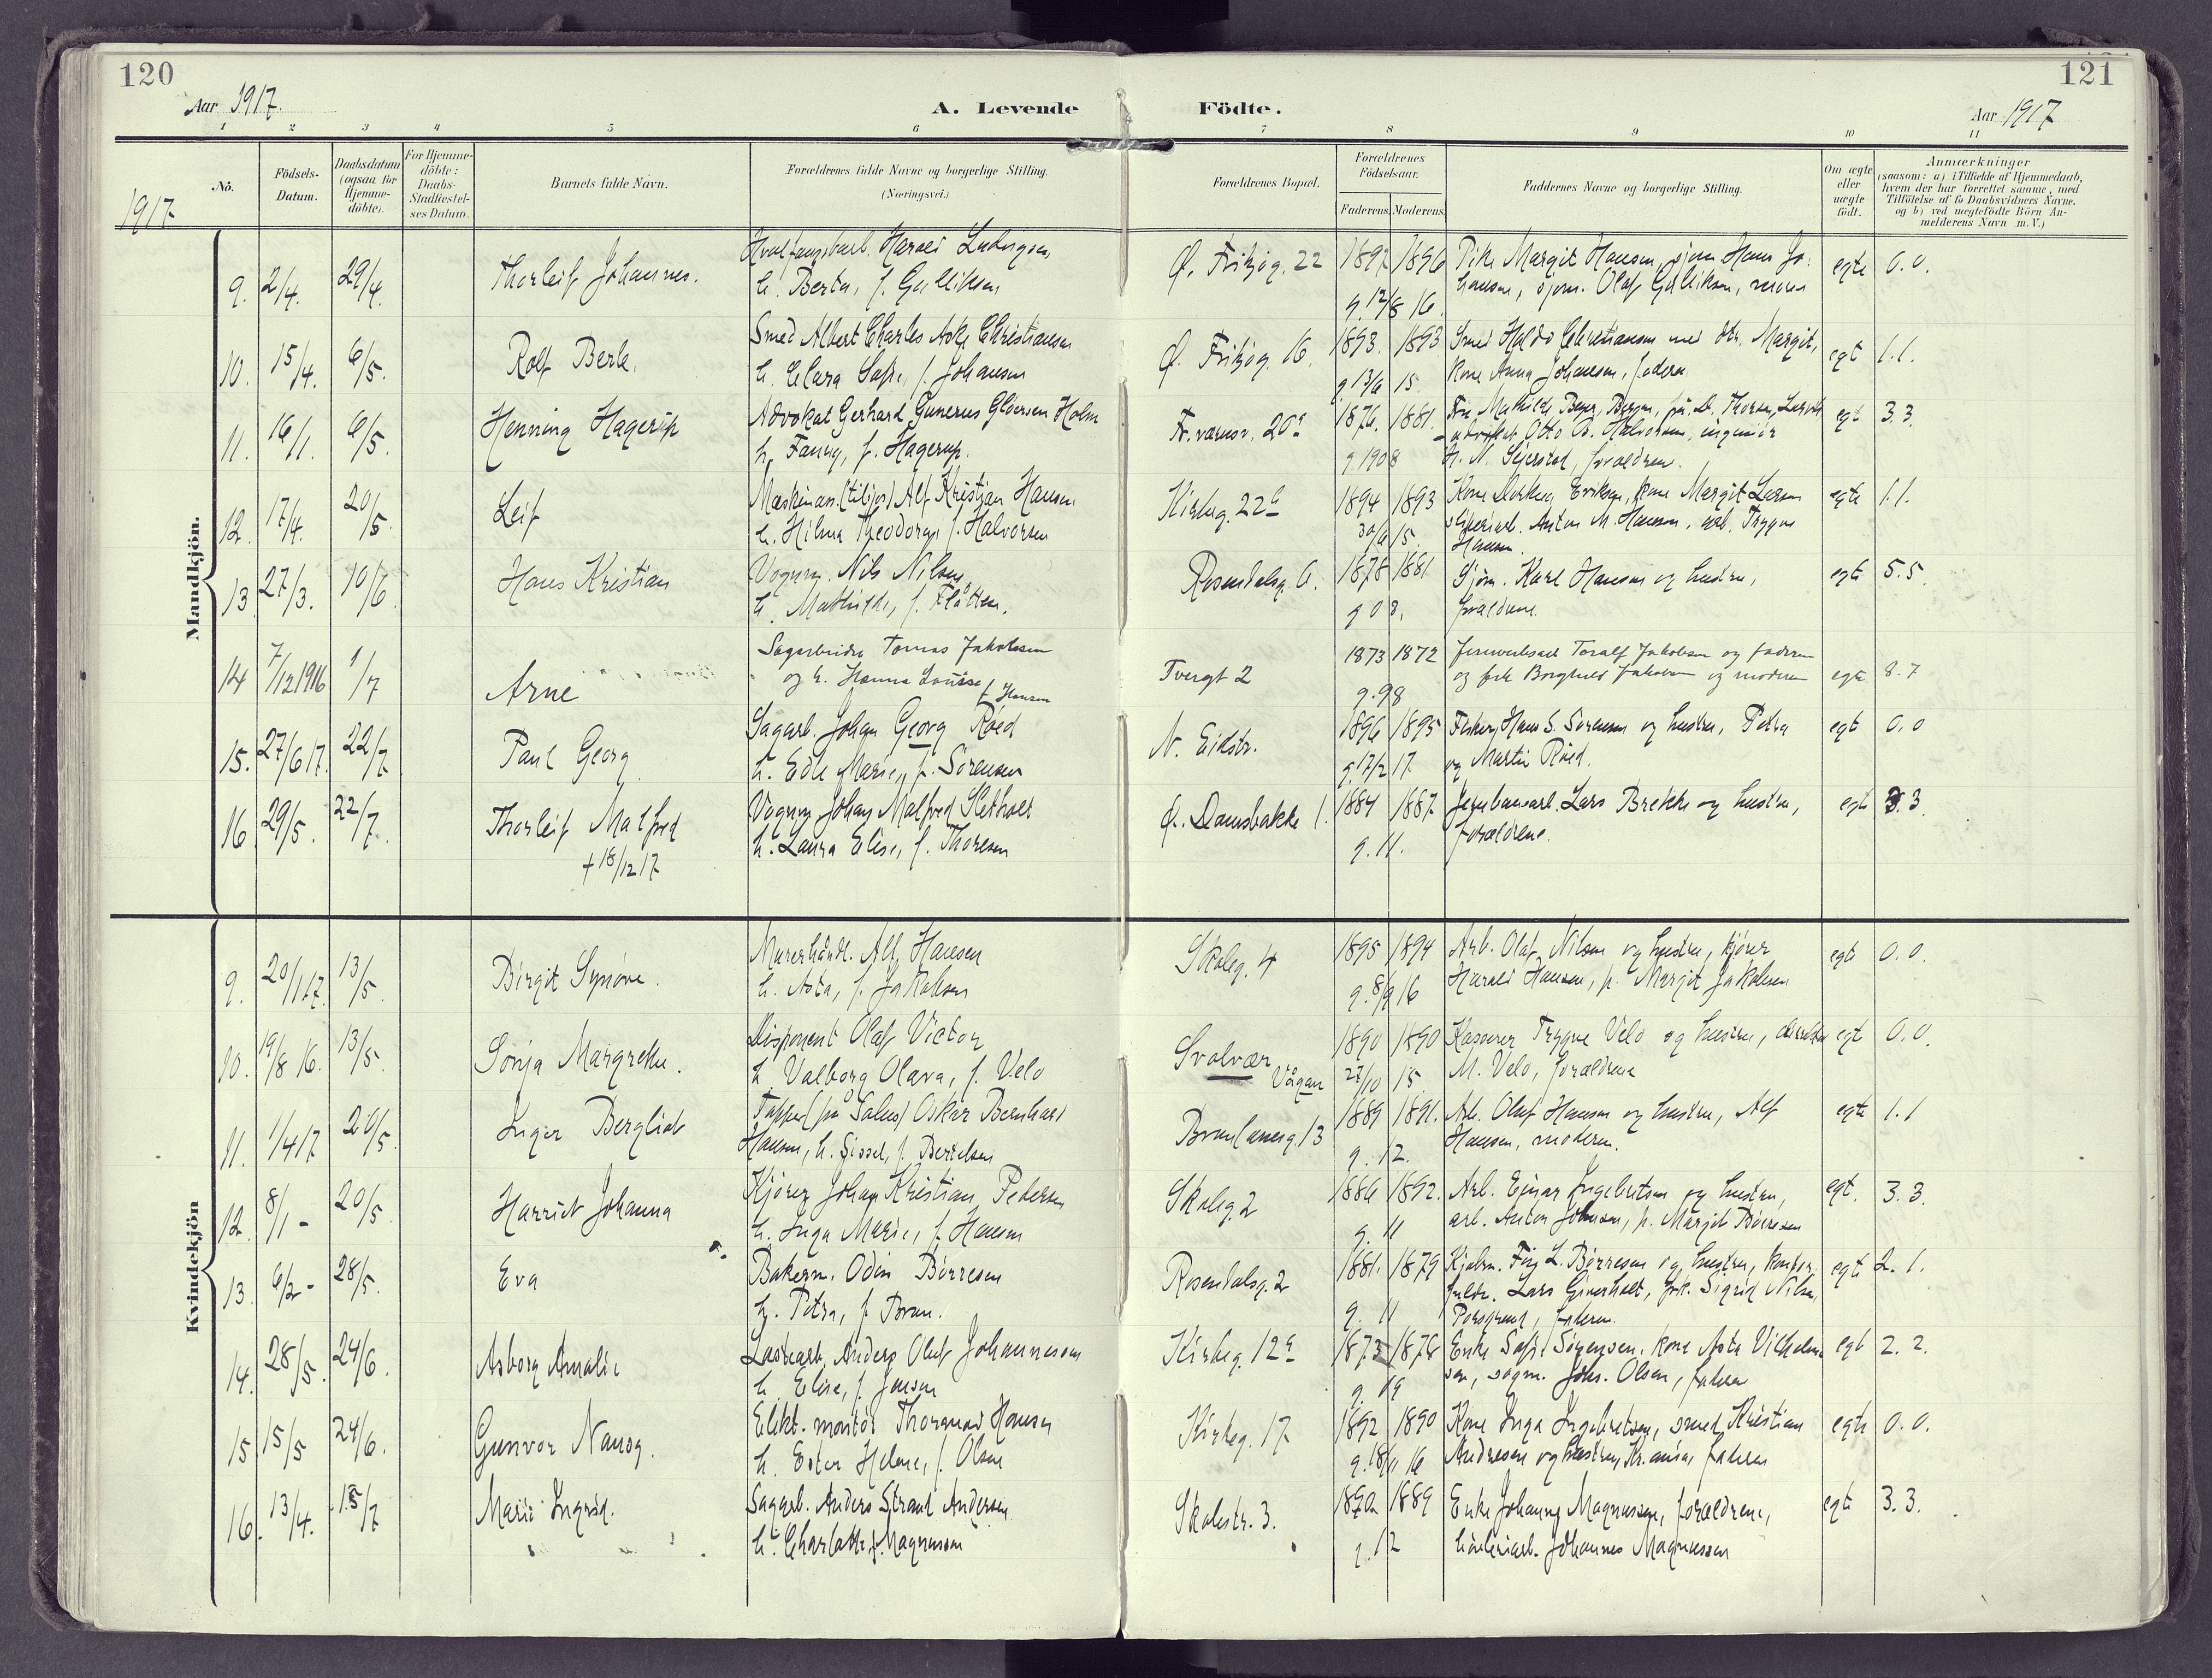 120
121
Aar 1917.
A. Levende Födte.
Aar 1917
1 2 3 4 5 6 7 8 9 10 11
1917
Nö.
Födsels-Datum.
Daabsdatum (ogsaa for Hjemme-döbte).
For Hjemme-döbte: Daabs-Stadfæstel-ses Datum.
Barnets fulde Navn.
Forældrenes fulde Navne og borgerlige Stilling. (Næringsvei.)
Forældrenes Bopæl.
Forældrenes Födselsaar.
Faderens. Moderens.
Faddernes Navne og borgerlige Stilling.
Om ægte eller uægte födt.
Anmærkninger (saasom: a) i Tilfælde af Hjemmedaab, hvem der har forrettet samme, med Tilföielse af to Daabsvidners Navne, og b) ved uægtefödte Börn An-melderens Navn m. V.)
Mandkjön.
9. 2/4. 29/4. Thorleif Johannes. Hvalfangstarb. Harald Ludvigsen, Ø. Fritzøg. 22 1892 1896 Pike Margit Hansen, sjøm Hans Jo- egte 0.0.
h. Berta, f. Gulliksen g. 12/8 16. hansen, sjøm. Olaf Gulliksen,
10. 15/4. 6/5. Rolf Berle. Smed Albert Charles Christiansen Ø. Fritzøg. 16. 1893. 1893 Smed Christiansen med Margit, egt 1.1.
h. Clara Sofie, f. Johansen g 13/6 15. kone Anna Johansen, faderen
11. 16/1. 6/5. Henning Hagerup Advokat Gerhard Gunerus Gløersen Holm 1876. 1881. Fru Mathilde Beyer, Bergen, egt 3.3.
h. Fanny, f. Hagerup. g 1908 advokat Otto B. Halvorsen, ingeniør
forældrene.
12. 17/4. 20/5. Leif Alf Kristian Hansen Kirkeg. 22 1894 1893 Kone Eriksen, kone Margit Larsen egte 1.1.
h. Hilma Theodora f. Halvorsen 30/6 15. Anton M. Hansen, arb. Trygve
Hansen.
13. 27/3. 10/6. Hans Kristian Vognm. Nils Nilsen, Rosendalsg. 6. 1878 1881 Sjøm. Karl Hansen og hustru, egte 5.5.
h. Mathilde, f. Flåtten. g 08. forældrene.
14 7/12 1916 1/7 Arne Sagarbeider Tomas Jakobsen Tvergt 2 1873 1872 Toralf Jakobsen og faderen egte 8.7
og h. Hanna Louise f Hansen g. 98 og frk Borghild Jakobsen og moderen
15. 27/6 17. 22/7 Paul Georg Sagarb. Johan Georg Røed N. Eidstr. 1896 1895 Fisker Hans S. Sørensen og hustru, Petra egt 0.0
h. Edle Marie, f. Sørensen g. 17/2 17. og Martin Røed.
16 29/5. 22/7. Thorleif Malfred Vognm. Johan Malfred Sletholt Ø. Damsbakke 1. 1884 1887 Jernbanearb. Lars Brekke og hustru, egt 3.3.
† 18/12 17 h. Laura Elise, f. Thoresen g. 11. forældrene.
Kvindekjön
9. 20/1 17. 13/5. Birgit Synøve. Murerhåndl. Alf Hansen Skoleg. 4 1895 1894 Arb. Olaf Nilsen og hustru, kjører egte 0.0.
h. Asta, f. Jakobsen g. 8/9 16 Harald Hansen, p. Margit Jakobsen
10. 19/8 16. 13/5. Sonja Margrethe. Disponent Olaf Victor Svolvær Vågan 1890 1890 Kasserer Trygve Velo og hustru, egt 0.0.
h. Valborg Olava, f. Velo 27/10 15. M. Velo, forældrene
11. 1/4 17 20/5. Inger Bergliot Tapper (på Salus) Oskar Bernhard 1889 1891. Arb. Olaf Hansen og hustru, Alf egte 1.1
Hansen, h. Sissel, f. Bertelsen g. 12. Hansen, moderen.
12. 8/1 - 20/5 Harriet Johanna Kjører Johan Kristian Pedersen Skoleg. 2 1886 1892. Arb. Einar Ingebretsen og hustru, egt. 3.3.
h. Inga Marie, f. Hansen g. 11 arb. Anton Johnsen, p. Margit Børresen
13. 6/2 - 28/5. Eva Bakerm. Odin Børresen Rosendalsg. 2 1881. 1879 Kjøbm. L. Børresen og hustru, egte 2.1.
h. Petra, f. Brun. g. 11 Lars Giverholt, frk. Sigrid Nilsen,
Porsgrund, faderen.
14. 28/5. 24/6. Asborg Amalie Lastearb. Anders Olaf Johannesen Kirkeg. 12 1873 1878 Enke Sofie Sørensen, kone Asta Vilhelm- egt 2.2.
h. Elise, f. Jensen g. 09 sen, sagm. Johs. Olsen, faderen
15 15/5 24/6. Gunvor Nansy. Elekt. montør Thormod Hansen Kirkeg. 17 1892 1890 Kone Inga Ingebretsen, smed Kristian egte 0.0.
h. Ester Helene, f. Olsen g. 18/11 16 Andresen og hustru, Kr.ania, faderen
16. 13/4. 15/7 Marie Ingrid. Sagarb. Anders Strand Andersen Skolestr. 3. 1890 1889 Enke Johanne Magnussen, forældrene, egte 3.3.
h. Charlotte f. Magnussen g. 12 Johannes Magnussen